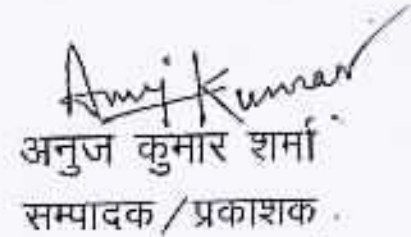 Anuj Kumar
अनुज कुमार शर्मा
सम्पादक/प्रकाशक